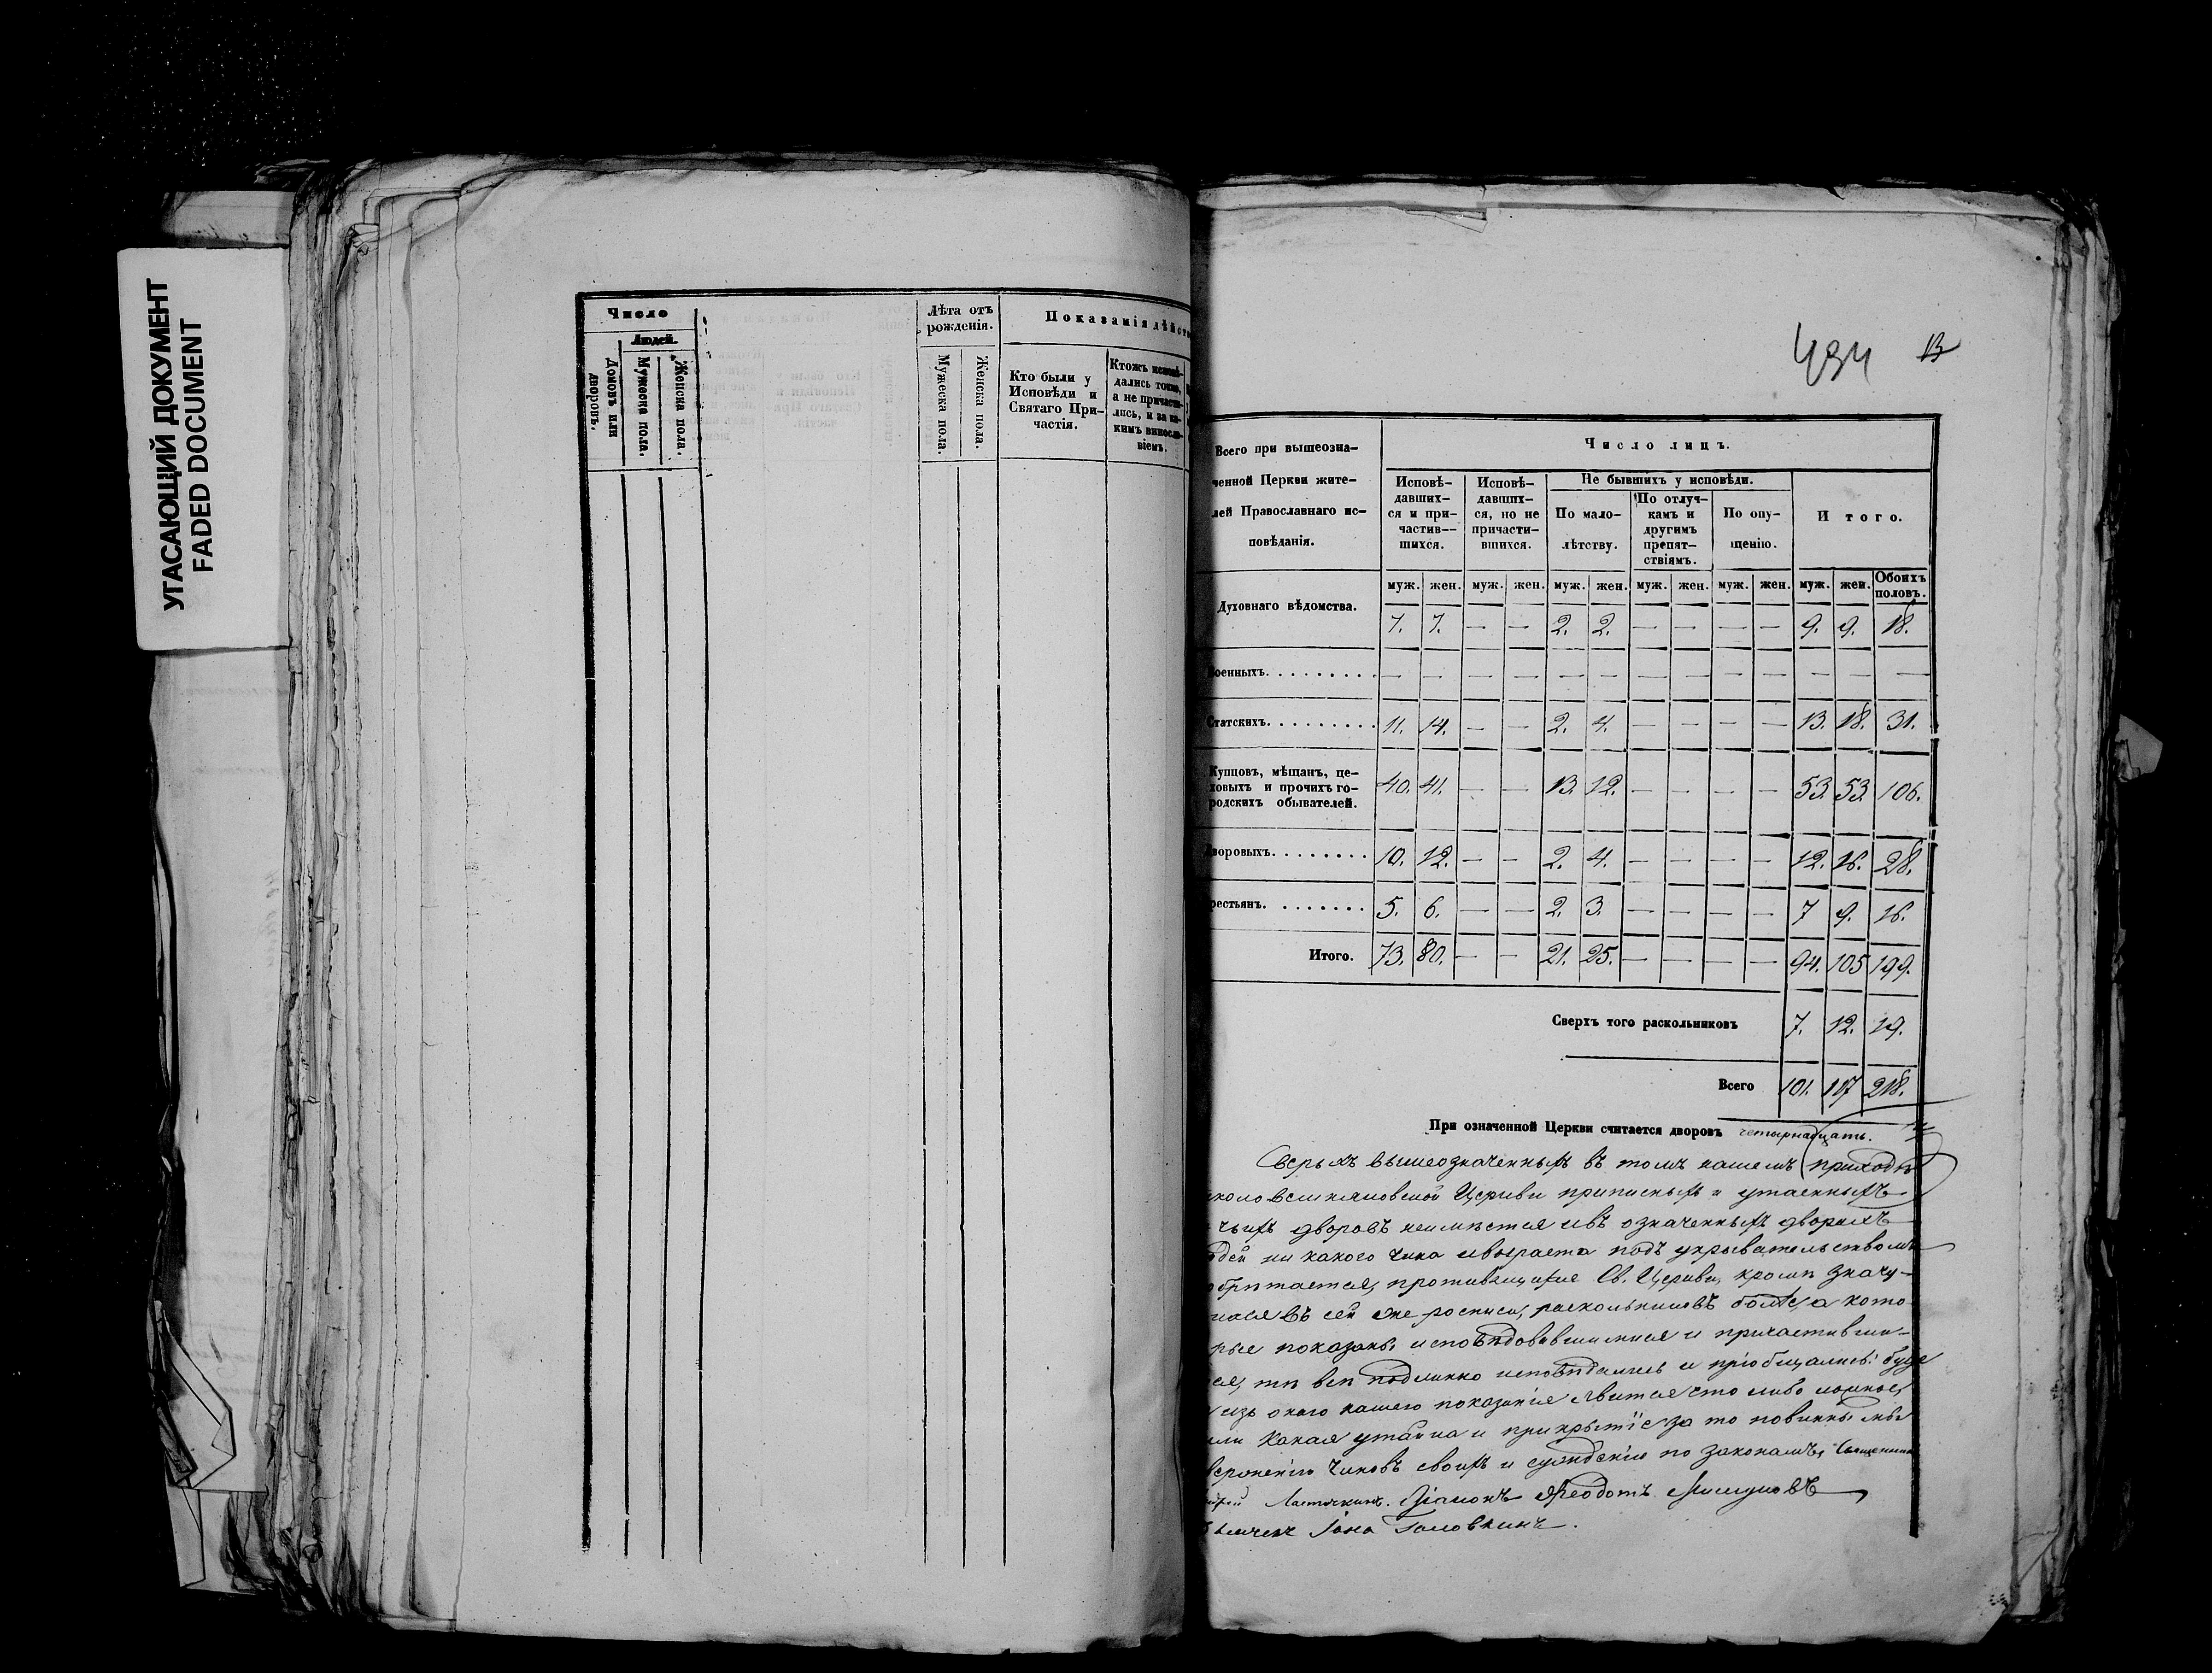 УГАСАЮЩИЙ ДОКУМЕНТ
FADED DOCUMENT
Число
Людей.
Домовъ или дворовъ.
Мужеска пола.
Женска пола.
Лѣта отъ рожденія.
Мужеска пола.
Женска пола.
Показанія дѣйст
Кто были у
Исповѣди и
Святаго При-
частія.
Ктожъ исповѣ-
дались токмо,
а не причасти-
лись, и за ка-
кимъ виносло-
віемъ.
494 13
Всего при вышеозна-
ченной Церкви жите-
лей Православнаго ис-
повѣданія.
Число лицъ.
Исповѣ-
давших-
ся и при-
частив-
шихся.
Исповѣ-
давших-
ся, но не
причасти-
вшихся.
Не бывшихъ у исповѣди.
По мало-
лѣтству.
По отлуч-
камъ и
другимъ
препят-
ствіямъ.
По опу-
щенію.
Итого.
муж. жен. муж. жен. муж. жен. муж. жен. муж. жен. муж. жен. Обоихъ половъ.
Духовнаго вѣдомства. 7. 7. — — 2. 2. — — — — 9. 9. 18.
Военныхъ. — — — — — — — — — — — — —
Статскихъ. 11. 14. — — 2. 4. — — — — 13. 18. 31.
Купцовъ, мѣщанъ, це-
ховыхъ и прочихъ го-
родскихъ обывателей. 40. 41. — — 13. 12. — — — — 53. 53. 106.
воровыхъ. 10. 12. — — 2. 4. — — — — 12. 16. 28.
рестьянъ. 5. 6. — — 2. 3. — — — — 7 9. 16.
Итого. 73. 80. — — 21. 25. — — — — 94. 105 199.
Сверхъ того раскольниковъ 7. 12. 19.
Всего 101. 117 218.
При означенной Церкви считается дворовъ четырнадцать.
Сверхъ вышеозначенныхъ въ томъ нашемъ приходѣ
Церкви приписныхъ и утаенныхъ
чьихъ дворовъ неимѣется и въ означенныхъ дворахъ
дей ни какого чина и возраста подъ укрывательствомъ
обрѣтается, противящихся Св. Церкви, кромѣ значу-
щихся въ сей же росписи, раскольниковъ болѣе, а кото
рые показаны исповѣдовавшимися и причастивши-
ся, тѣ всѣ подлинно исповѣдались и пріобщались: буде
изъ онаго нашего показанія явится что либо ложное,
или какая утайка и прикрытіе, за то повинны мы
верженію чиновъ своихъ и сужденію по законамъ. Священникъ
Ласточкинъ. Діаконъ Ѳеодотъ
Іона Головкинъ.